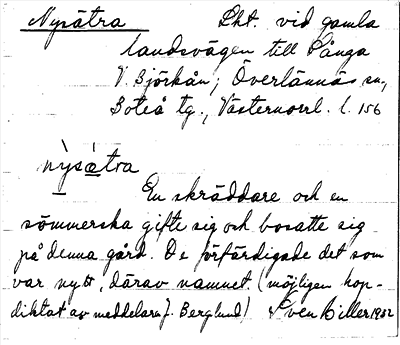 Nysätra Lht. vid gamla
landsvägen till Långa
V. Björkån; Överlännäs sn,
Boteå tg., Västernorrl. l. 156
nysætra
En skräddare och en
sömmerska gifte sig och bosatte sig
på denna gård. De förfärdigade det som
var nytt, därav namnet. (möjligen hop-
diktat av meddelaren J. Berglund) Sven Ciller 1932